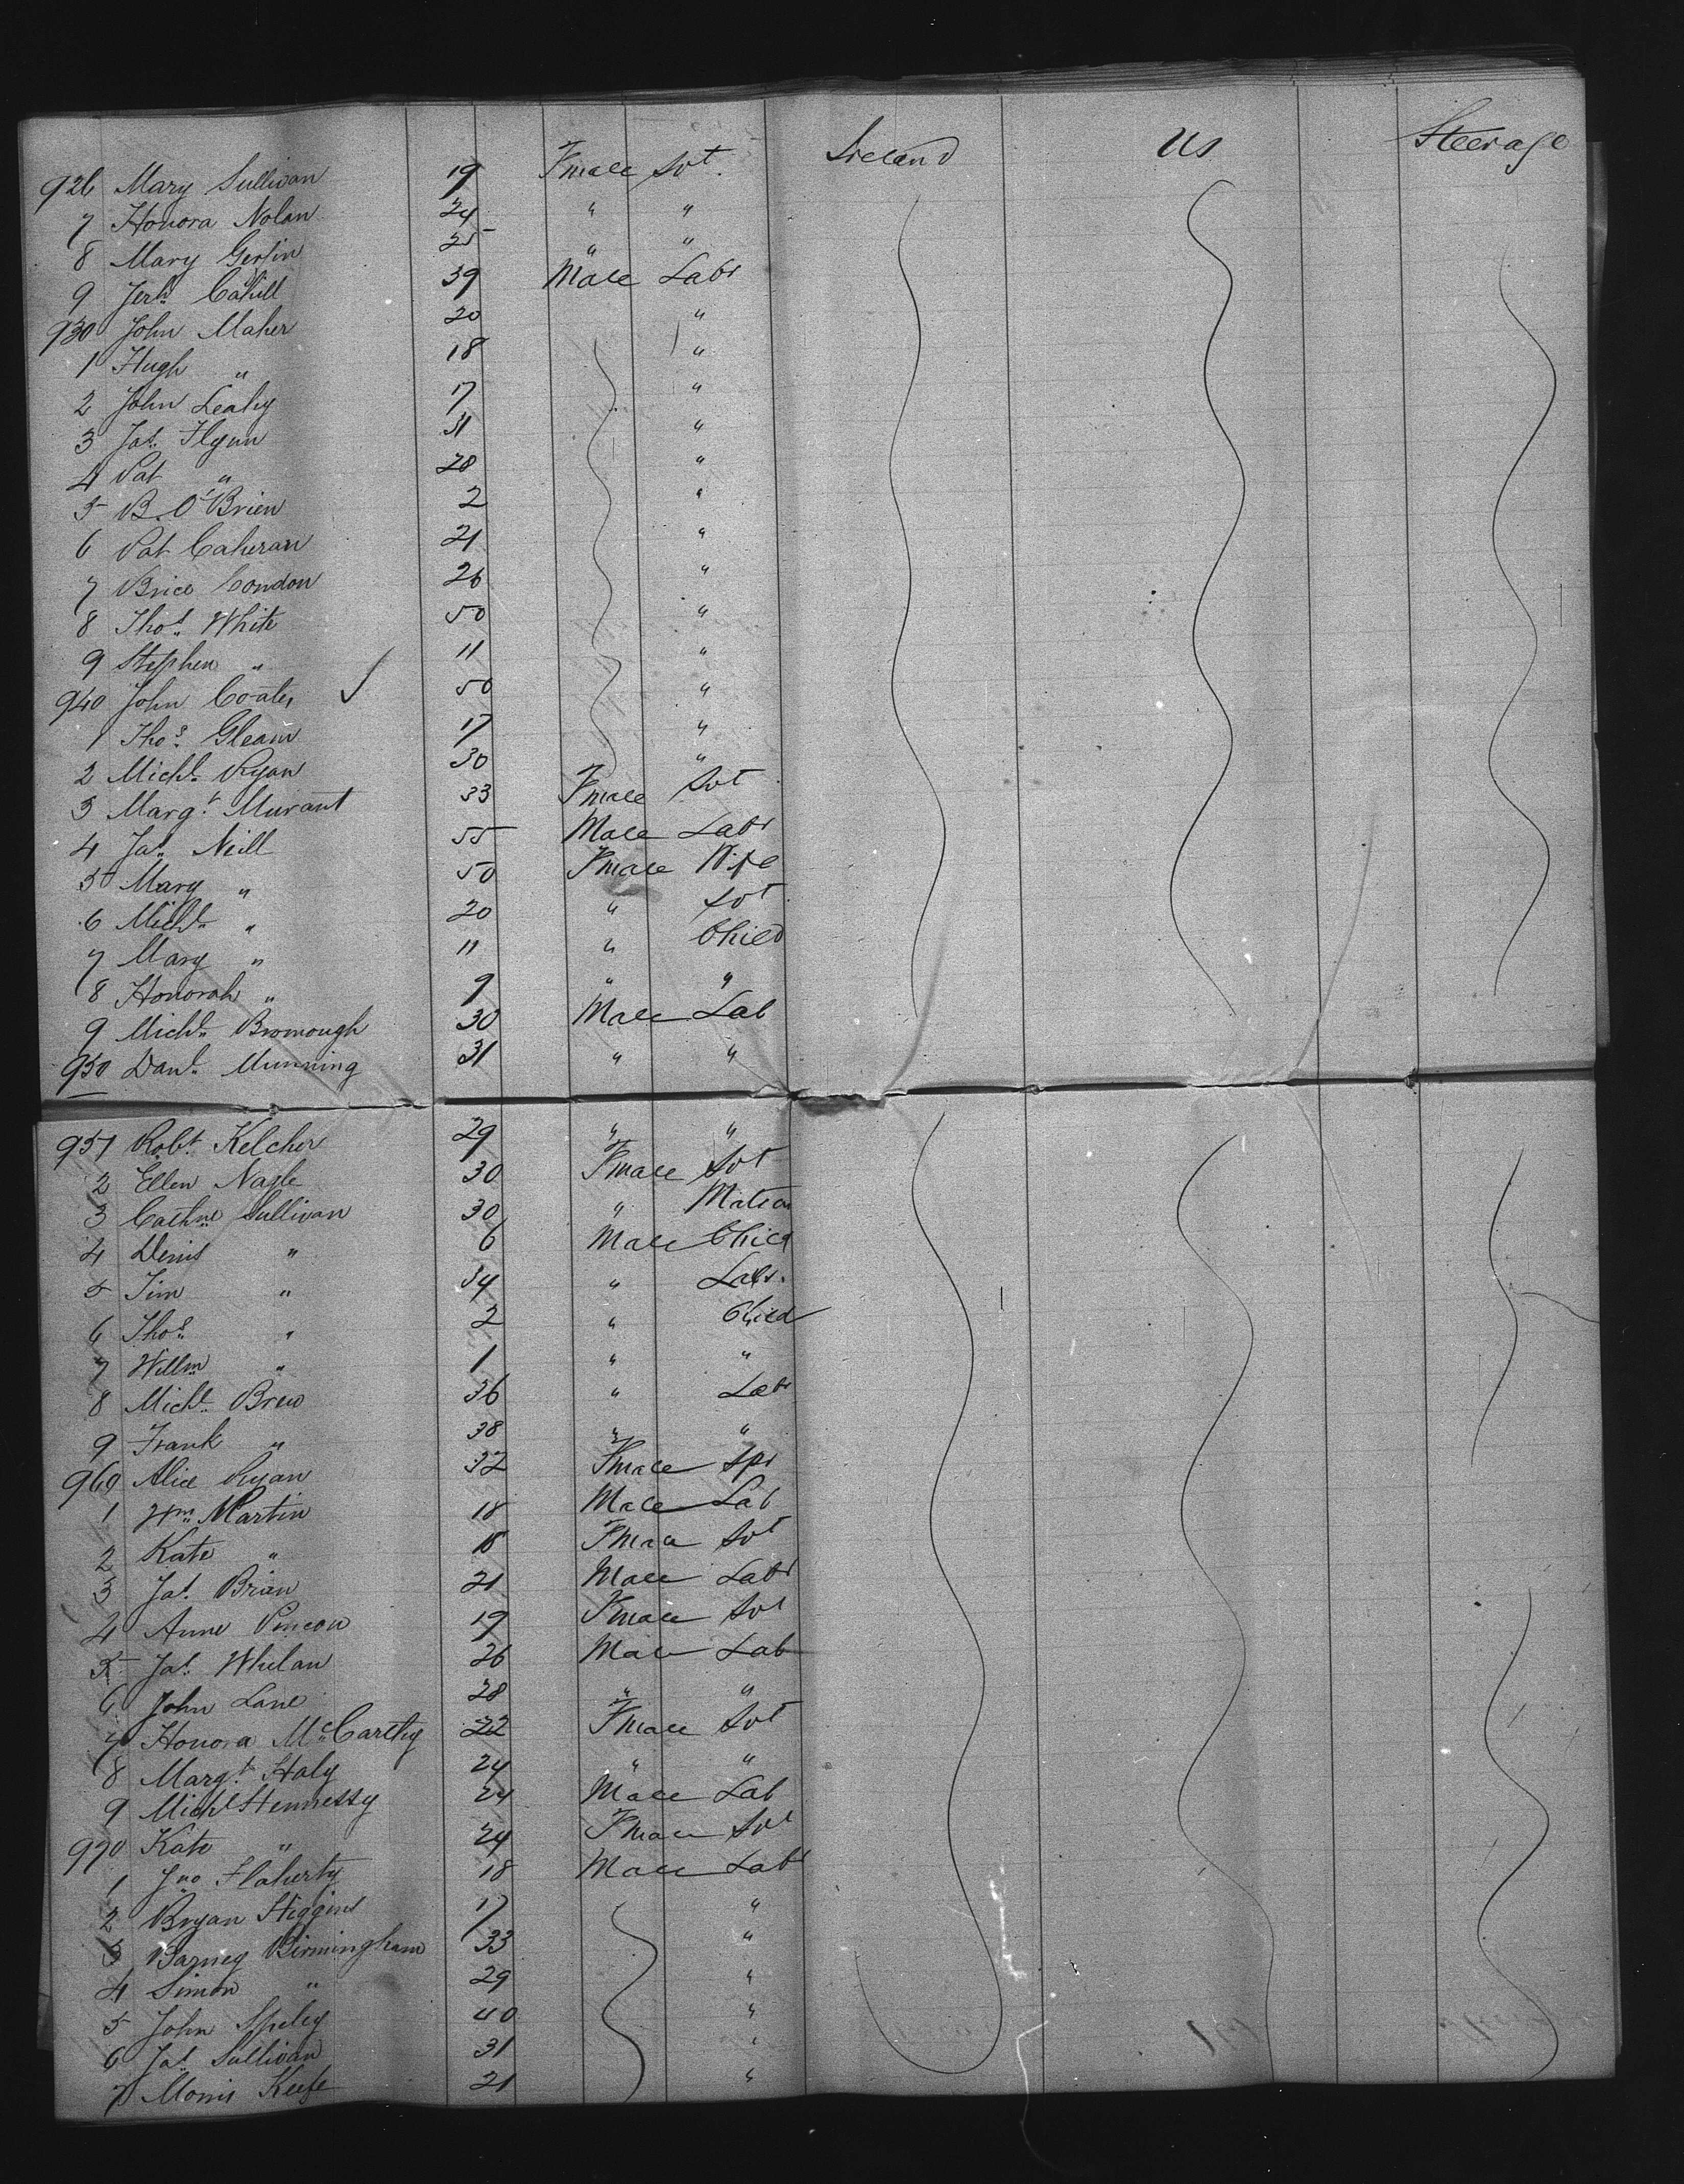 926 Mary Sullivan 19 Fmale Svt. Ireland Us Steerage
7 Honora Nolan 24 " "
8 Mary Gerlin 25 " "
9 Jerh. Cahill 39 Male Labr
930 John Maher 20 "
1 Hugh " 18 "
2 John Leahy 17 "
3 Jas. Flynn 31 "
4 Pat " 28 "
5 B. O'Brien 2 "
6 Pat Caheran 21 "
7 Brice Condon 26 "
8 Thos. White 50 "
9 Stephen " 11 "
940 John Coates 50 "
1 Thos. Gleam 17 "
2 Michl. Ryan 30 "
3 Margt. Murant 33 Fmale Svt
4 Jas. Neill 55 Male Labr
5 Mary " 50 Fmale Wife
6 Michl. " 20 " Svt
7 Mary " 11 " Child
8 Honorah " 9 " "
9 Michl. Bromough 30 Male Lab
950 Danl. Munning 31 " "
951 Robt. Kelcher 29 " "
2 Ellen Nagle 30 Fmale Svt
3 Cathne Sullivan 30 " Matron
4 Denis " 6 Male Child
5 Tim " 34 " Labr.
6 Thos. " 2 " Child
7 Willm " 1 " "
8 Michl. Brew 36 " Labr
9 Frank " 38 " "
960 Alice Ryan 32 Fmale Spr
1 Wm. Martin 18 Male Lab
2 Kate " 18 Fmale Svt
3 Jas. Brian 21 Male Labr
4 Anne Pincon 19 Fmale Svt
5 Jas. Whelan 26 Male Lab
6 John Lane 28 " "
7 Honora McCarthy 22 Fmale Svt
8 Margt. Haly 24 " "
9 Michl Hennessy 24 Male Lab
970 Kate " 24 Fmale Svt
1 Jno Flaherty 18 Male Labr
2 Bryan Higgins 17 "
3 Barney Birmingham 33 "
4 Simon " 29 "
5 John Speley 40 "
6 Jas. Sullivan 31 "
7 Morris Keefe 21 "